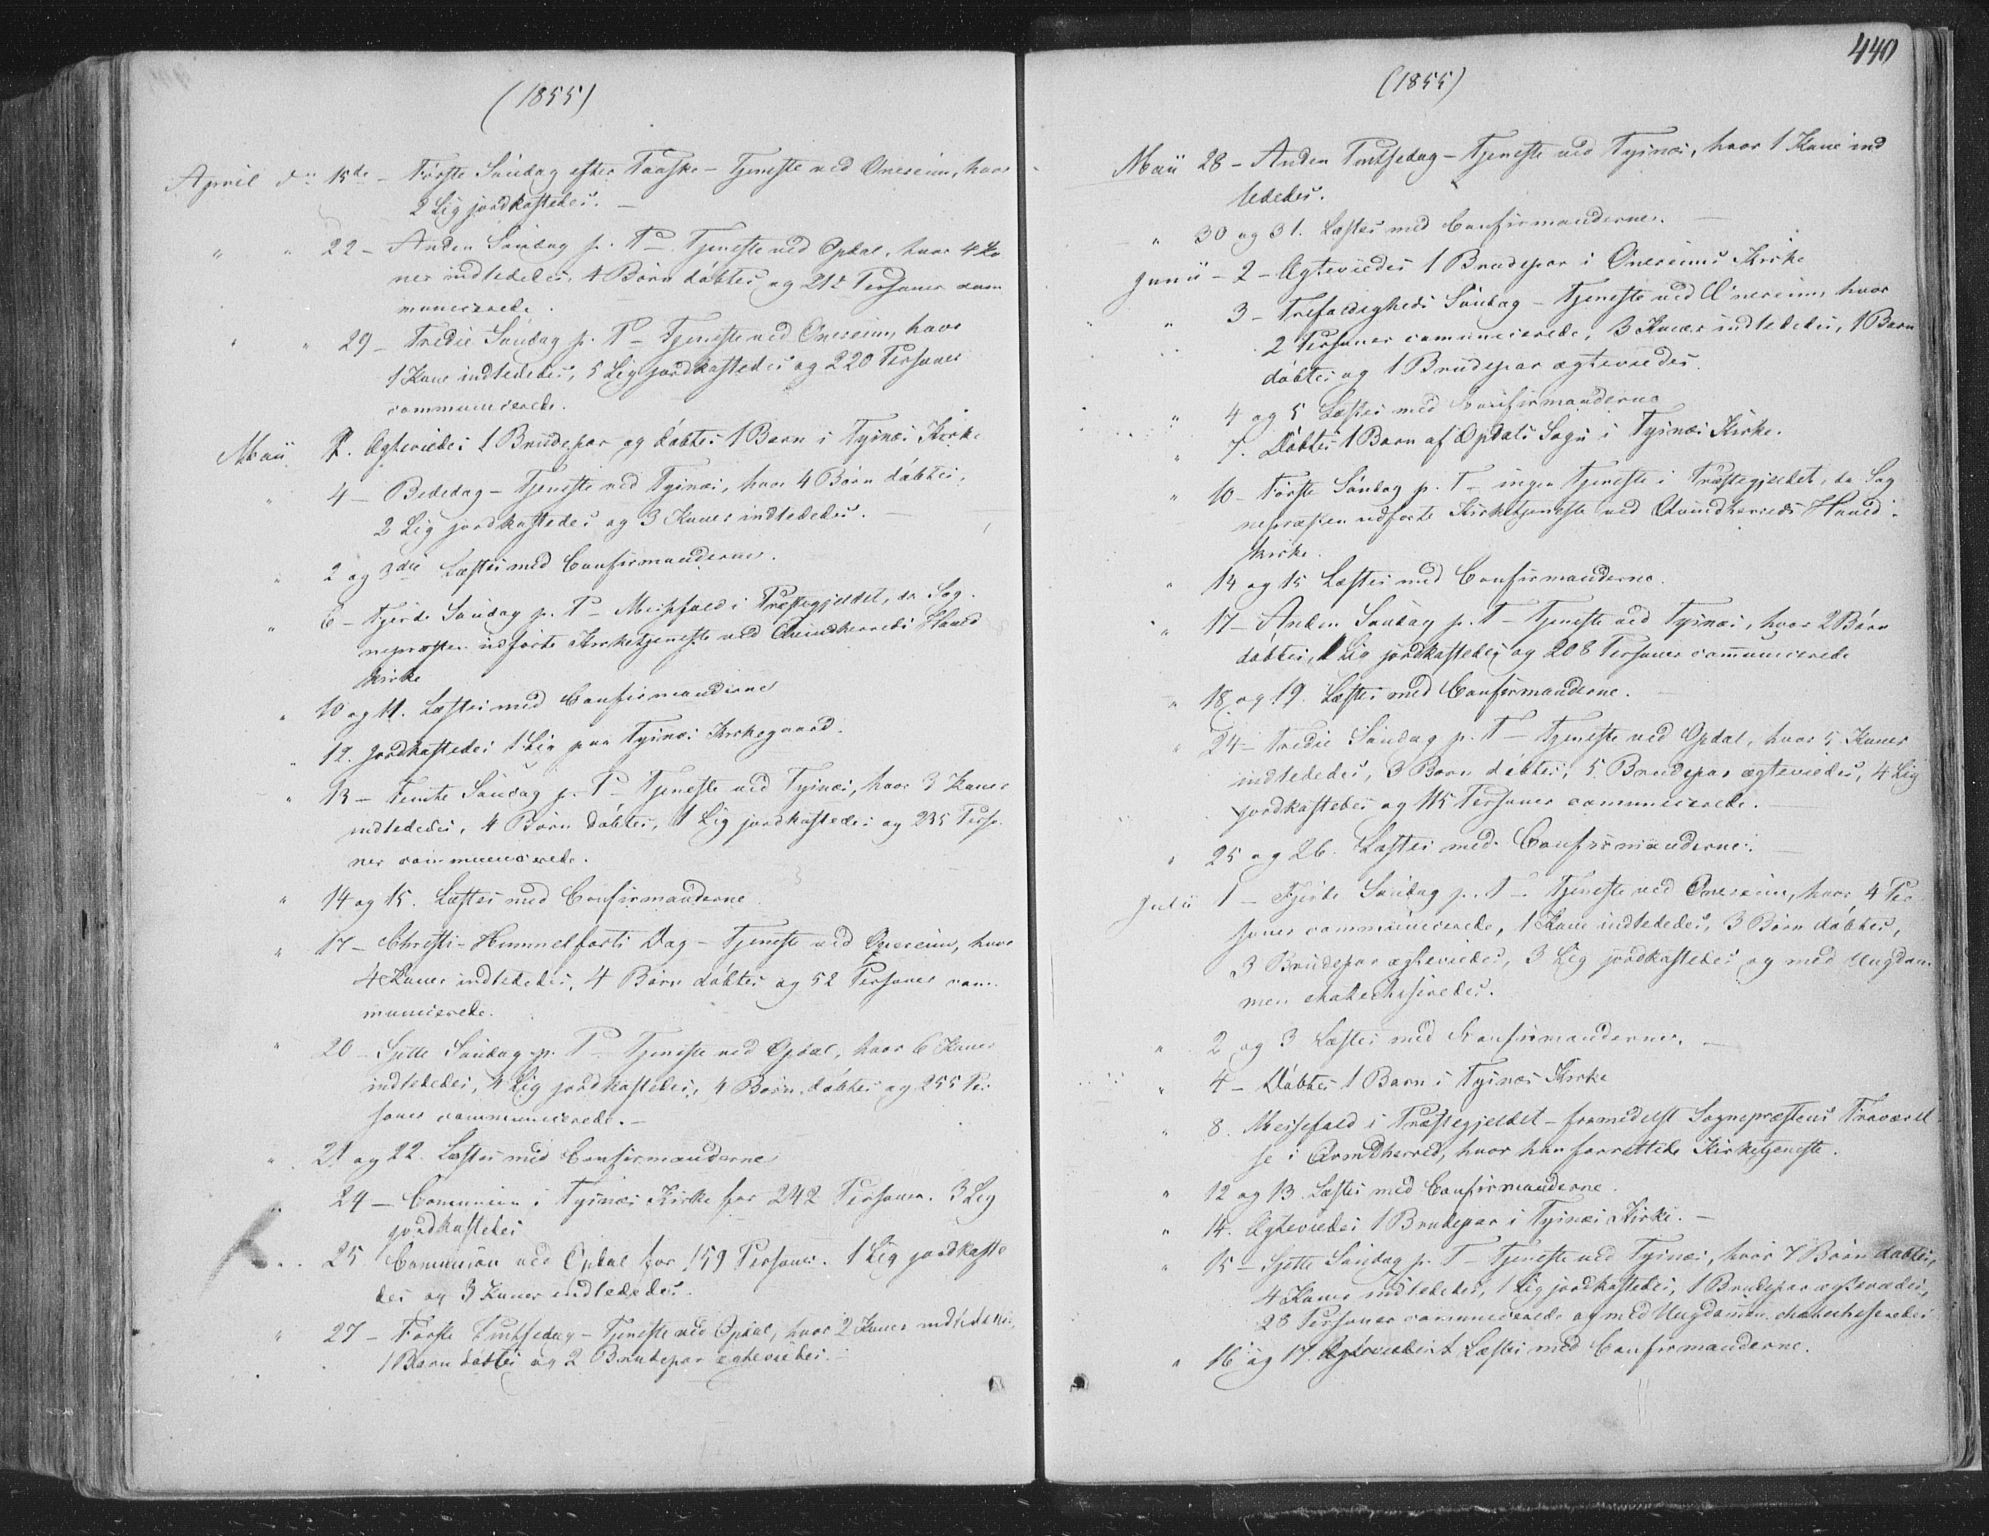 (1855)
April d: 15de - Første Søndag efter Paaske - Tjeneste ved Onereim, hvor
2 Lig jordkastedes. -
" " 22 - Anden Søndag p. P - Tjeneste ved Opdal, hvor 4 Ko
ner indlededes, 4 Børn døbtes og 212 Personer com
municerede.
" " 29 - Tredie Søndag p. P - Tjeneste ved Onereim, hvor
1 Kone indlededes, 5 Lig jordkastedes og 220 Personer
communicerede.
Maii 1. Ægteviedes 1 Brudepar og døbtes 1 Barn i Tysnæs Kirke
" 4 - Bededag - Tjeneste ved Tysnæs, hvor 4 Børn døbtes,
2 Lig jordkastedes og 3 Koner indlededes. -
" 2 og 3die Læstes med Confirmanderne.
" 6 - Fjerde Søndag p. P - Messefald i Præstegjeldet, da Sog
nepræsten udførte Kirketjeneste ved Qvindherreds Hoved
kirke
" 10 og 11. Læstes med Confirmanderne
" 12. Jordkastedes 1 Lig paa Tysnæs Kirkegaard.
" 13 - Femte Søndag p. P - Tjeneste ved Tysnæs, hvor 3 Koner
indlededes, 4 Børn døbtes, 1 Lig jordkastedes og 235 Perso
ner communicerede.
" 14 og 15. Læstes med Confirmanderne
" 17 - Christi-Himmelfarts Dag - Tjeneste ved Onereim, hvor
4 Koner indlededes, 4 Børn døbtes og 52 Personer com
municerede.
" 20 - Sjette Søndag p. P - Tjeneste ved Opdal, hvor 6 Koner
indlededes, 4 Lig jordkastedes, 4 Børn døbtes og 255 Per
soner communicerede. -
" 21 og 22. Læstes med Confirmanderne
" 24 - Communion i Tysnæs Kirke for 242 Personer. 3 Lig
jordkastedes
" 25 Communion ved Opdal for 159 Personer. 1 Lig jordkaste
des og 3 Koner indlededes.
" 27 - Første Pintsedag - Tjeneste ved Opdal, hvor 2 Koner indlededes,
1 Barn døbtes og 2 Brudepar ægteviedes. -
440
(1855)
Maii 28 - Anden Pintsedag - Tjeneste ved Tysnæs, hvor 1 Kone ind
lededes.
" 30 og 31. Læstes med Confirmanderne. -
Junii - 2 - Ægteviedes 1 Brudepar i Onereims Kirke
" 3 - Trefoldigheds Søndag - Tjeneste ved Onereim, hvor
2 Personer communicerede, 3 Koner indlededes, 1 Barn
døbtes og 1 Brudepar ægteviedes.
" 4 og 5 Læstes med Confirmanderne
" 7. Døbtes 1 Barn af Opdals Sogn i Tysnæs Kirke.
" 10 - Første Søndag p. T - ingen Tjeneste i Præstegjeldet, da Sog
nepræsten udførte Kirketjeneste ved Qvindherreds Hoved
kirke.
" 14 og 15 Læstes med Confirmanderne.
" 17 - Anden Søndag p. T - Tjeneste ved Tysnæs, hvor 2 Børn
døbtes, 1 Lig jordkastedes og 208 Personer communicerede
" 18 og 19. Læstes med Confirmanderne.
" 24 - Tredie Søndag p. T - Tjeneste ved Opdal, hvor 5 Koner
indlededes, 3 Børn døbtes, 5 Brudepar ægteviedes, 4 Lig
jordkastedes og 115 Personer communicerede.
" 25 og 26. Læstes med Confirmanderne.
Julii 1 - Fjerde Søndag p. T - Tjeneste ved Onereim, hvor 4 Per
soner communicerede, 1 Kone indlededes, 3 Børn døbtes,
3 Brudepar ægteviedes, 3 Lig jordkastedes og med Ungdom
men chatechiseredes.
" 2 og 3 Læstes med Confirmanderne. -
" 4 - Døbtes 1 Barn i Tysnæs Kirke
" 8. Messefald i Præstegjeldet - formedelst Sognepræstens Fraværel
se i Qvindherred, hvor han forrettede Kirketjeneste.
" 12 og 13. Læstes med Confirmanderne.
" 14. Ægteviedes 1 Brudepar i Tysnæs Kirke. -
" 15 - Sjette Søndag p. T - Tjeneste ved Tysnæs, hvor 7 Børn døbtes,
4 Koner indlededes, 1 Lig jordkastedes, 1 Brudepar ægteviedes,
28 Personer communicerede og med Ungdommen chatechiseredes
" 16 og 17. Læstes med Confirmanderne.